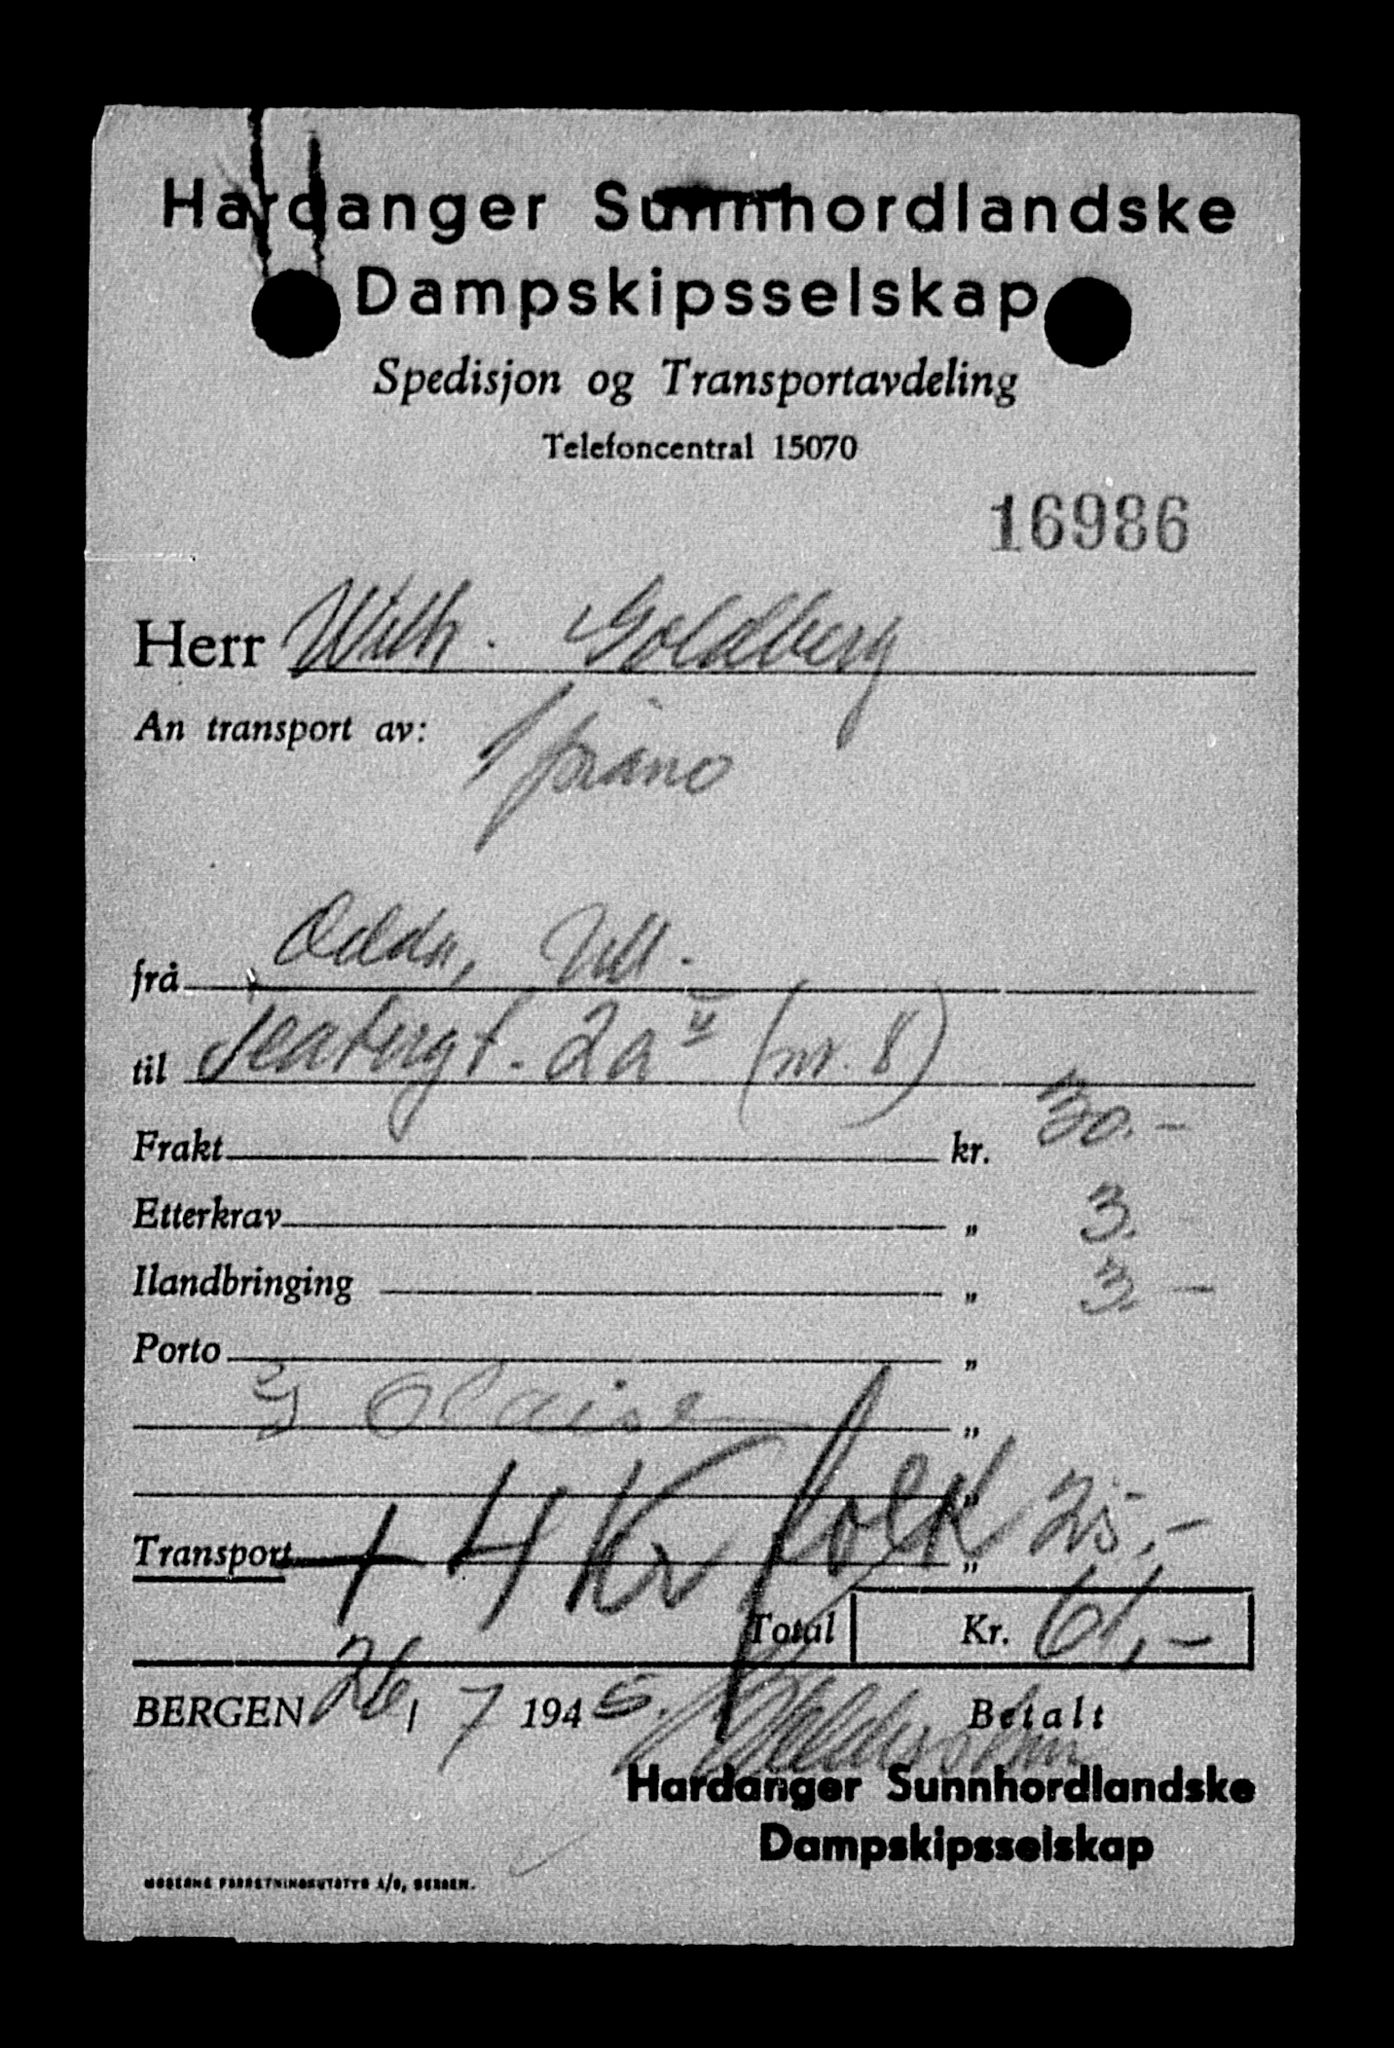 Hardanger Sunnhordlandske
Dampskipsselskap
Spedisjon og Transportavdeling
Telefoncentral 15070
16986
Herr Wilh. Goldberg
An transport av: 1 piano
frå Odda, Ull.
til 2a II (nr. 8)
Frakt kr. 30.-
Etterkrav „ 3.-
Ilandbringing „ 3.-
Porto „
„
„
Transport + 4 Kr „ 25,-
Total Kr. 61,-
BERGEN 26/7 1945. Betalt
Hardanger Sunnhordlandske
Dampskipsselskap
MODERNE FORRETNINGSUTSTYR A/S, BERGEN.